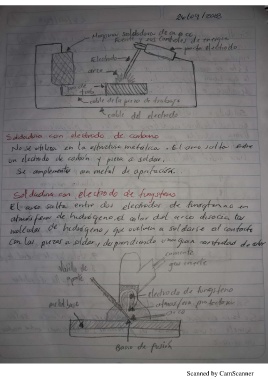 Maquina soldadora de
porta electrodo
Electrodo
arco
cable de la pieza de
cable del electrodo
Soldadura con electrodo de carbono
No se utiliza en la estructura metalica. El arco salta entre
un electrodo de carbón y pieza a soldar.
Se con metal de aportación.
Soldadura con electrodo de tungsteno
El arco salta entre dos electrodos de tungsteno en
atmósfera de hidrogeno. el calor del arco disocia las
moleculas de hidrogeno, que vuelven a soldarse al contacto
con las piezas a soldar, desprendiendo una gran cantidad de calor
gas
electrodo de tungsteno
atmosfera protectora
arco
metal base
Baño de fusión
Scanned by CamScanner